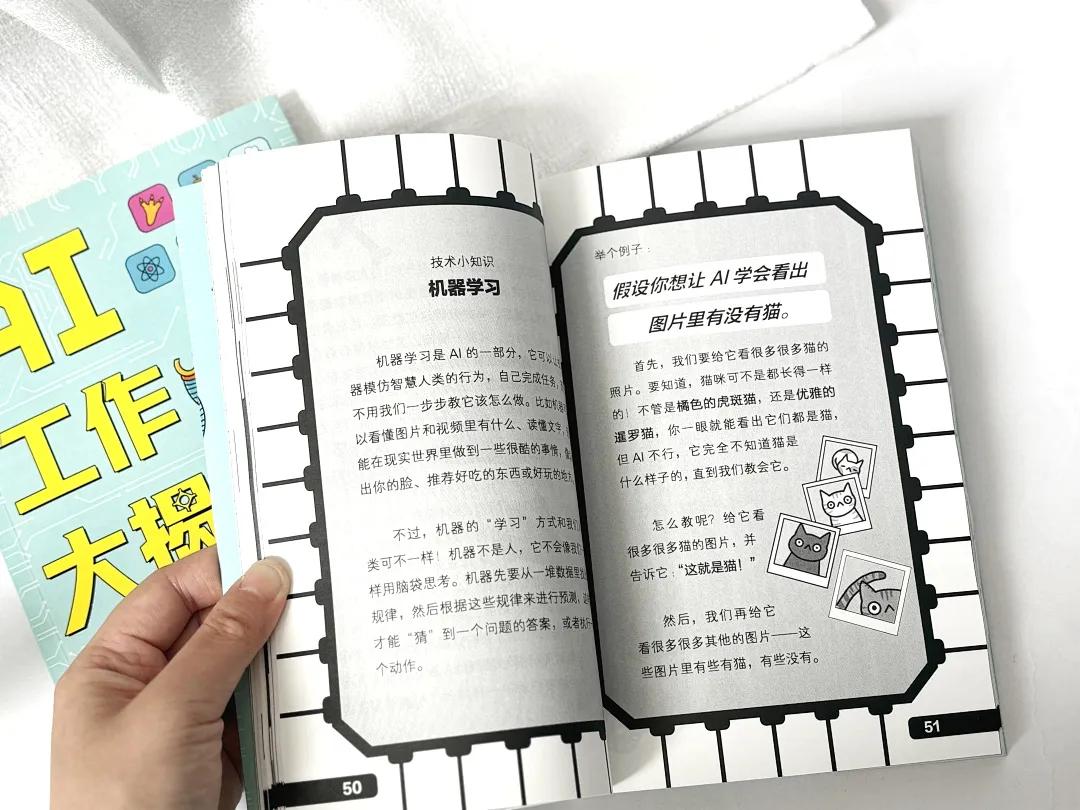 AI
工作
大操
技术小知识
机器学习
机器学习是 AI 的一部分，它可以
器模仿智慧人类的行为，自己完成任务，
不用我们一步步教它该怎么做。比如
以看懂图片和视频里有什么、读懂文字，
能在现实世界里做到一些很酷的事情，
出你的脸、推荐好吃的东西或好玩的地
不过，机器的“学习”方式和我
类可不一样！机器不是人，它不会像我
样用脑袋思考。机器先要从一堆数据里
规律，然后根据这些规律来进行预测，
才能“猜”到一个问题的答案，或者执行
个动作。
50
举个例子：
假设你想让 AI 学会看出
图片里有没有猫。
首先，我们要给它看很多很多猫的
照片。要知道，猫咪可不是都长得一样
的！不管是橘色的虎斑猫，还是优雅的
暹罗猫，你一眼就能看出它们都是猫，
但 AI 不行，它完全不知道猫是
什么样子的，直到我们教会它。
怎么教呢？给它看
很多很多猫的图片，并
告诉它：“这就是猫！”
然后，我们再给它
看很多很多其他的图片——这
些图片里有些有猫，有些没有。
51